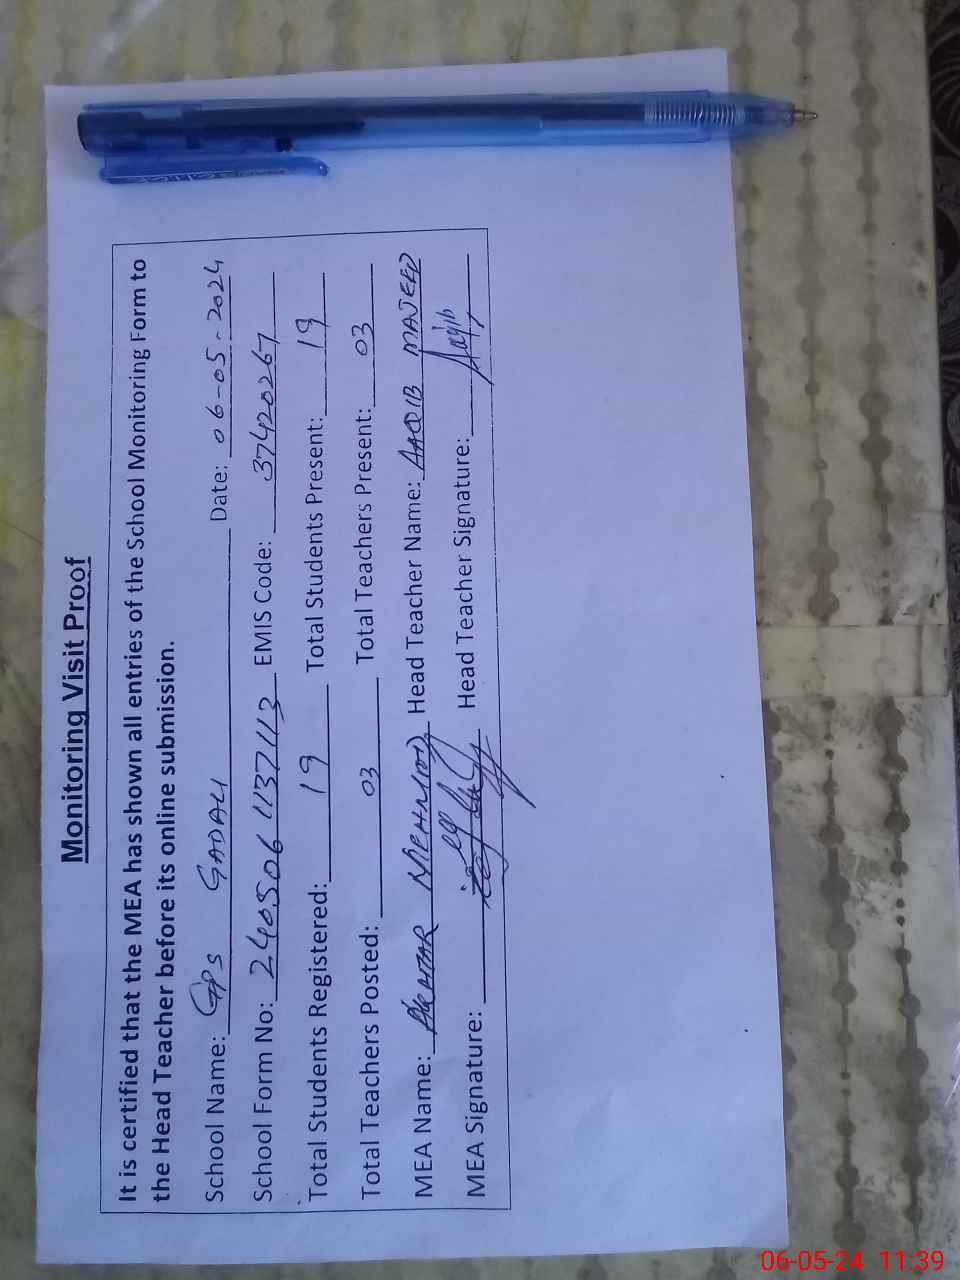 Monitoring Visit Proof
It is certified that the MEA has shown all entries of the School Monitoring Form to
the Head Teacher before its online submission.
School Name: GPS GADALI Date: 06-05-2024
School Form No: 240506 1137113 EMIS Code: 37420267
Total Students Registered: 19 Total Students Present: 19
Total Teachers Posted: 03 Total Teachers Present: 03
MEA Name: MEHMOOD Head Teacher Name: AAQIB MAJEED
MEA Signature: Head Teacher Signature: Aaqib
06-05-24 11:39